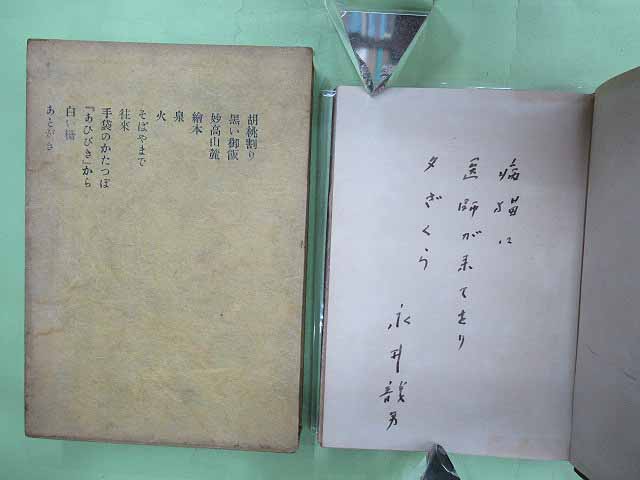 胡桃割り
黒い御飯
妙高山麓
繪本
泉
火
そばやまで
往來
手袋のかたつぽ
『あひびき』から
白い
あとがき
病猫に
医師が来てをり
夕ざくら
永井龍男